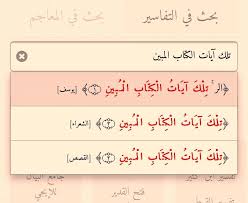 بحث في التفاسير بحث في المعاجم
تلك آيات الكتاب المبين
﴿الر ۚ تِلْكَ آيَاتُ الْكِتَابِ الْمُبِينِ ﴿١﴾﴾ [يوسف]
﴿تِلْكَ آيَاتُ الْكِتَابِ الْمُبِينِ ﴿٢﴾﴾ [الشعراء]
﴿تِلْكَ آيَاتُ الْكِتَابِ الْمُبِينِ ﴿٢﴾﴾ [القصص]
جامع البيان
فتح القدير للإيجي